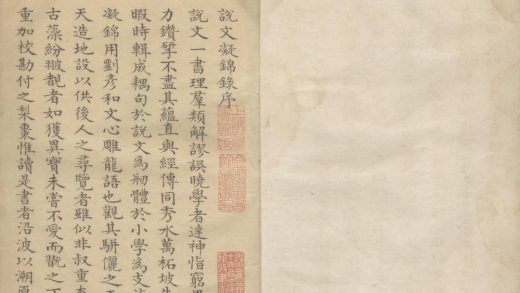 說文凝錦錄序
說文一書理羣類解謬誤曉學者達神恉窮畢
力鑽擘不盡其蘊直與經傳同秀水萬柘坡先
暇時輯成耦句於說文為刱體於小學為支
凝錦用劉彥和文心雕龍語也觀其駢儷之
天造地設以供後人之尋覽者雖似非叔重本
古藻紛披覩者如獲異寶未嘗不愛而翫之
重加校勘付之棃棗惟讀是書者沿波以溯原